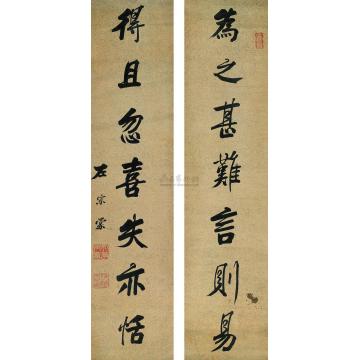 為之甚難言則易
得且忽喜失亦恬
左宗棠